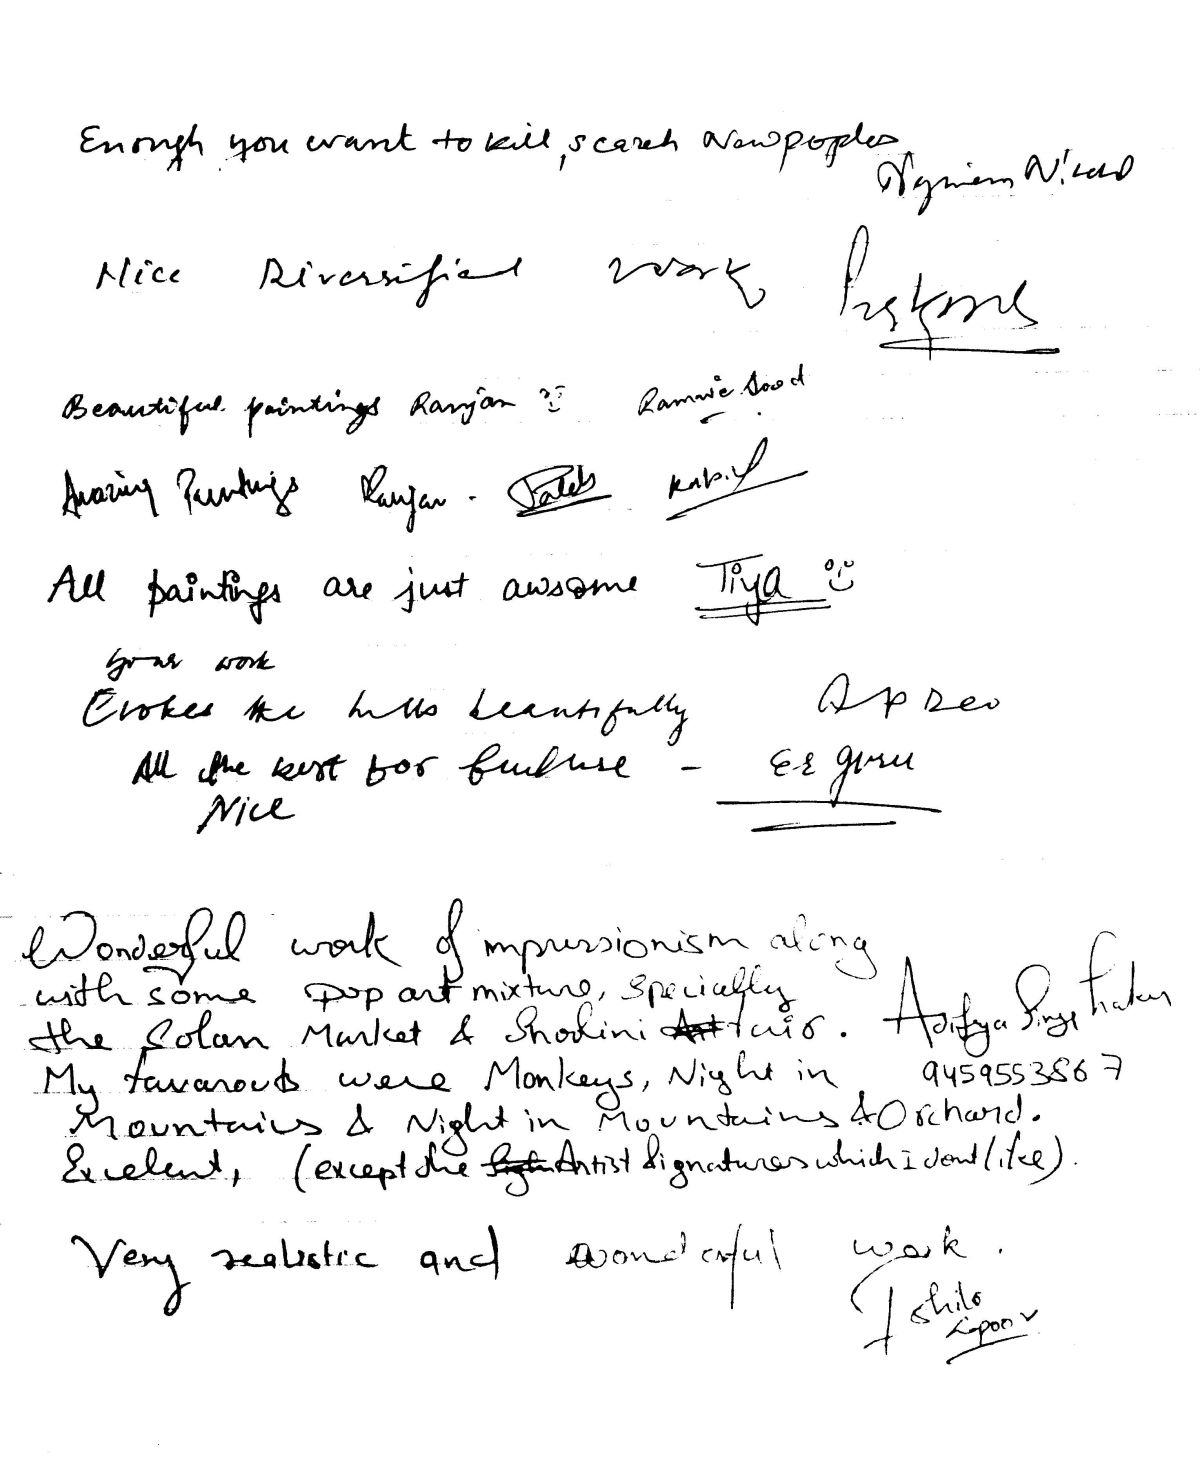 Enough you want to kill, search New peoples
Nice Diversified work
Beautiful paintings Ranjan Rannvie Sood
Amazing Paintings Ranjan. Kabir
All paintings are just awsome Tiya
your work
Evokes the hills beautifully A P Deo
All the best for fuuture - Er guru
Nice
Wonderful work of impressionism along
with some pop art mixture, specially
the Solan Market & Shoolini fair. Aditya Singh Thakur
My favarouts were Monkeys, Night in 9459553867
Mountains & Night in Mountains & Orchard.
Excelent, (except the Artist Signatures which I dont like).
Very realistic and wonderful work.
Kapoor